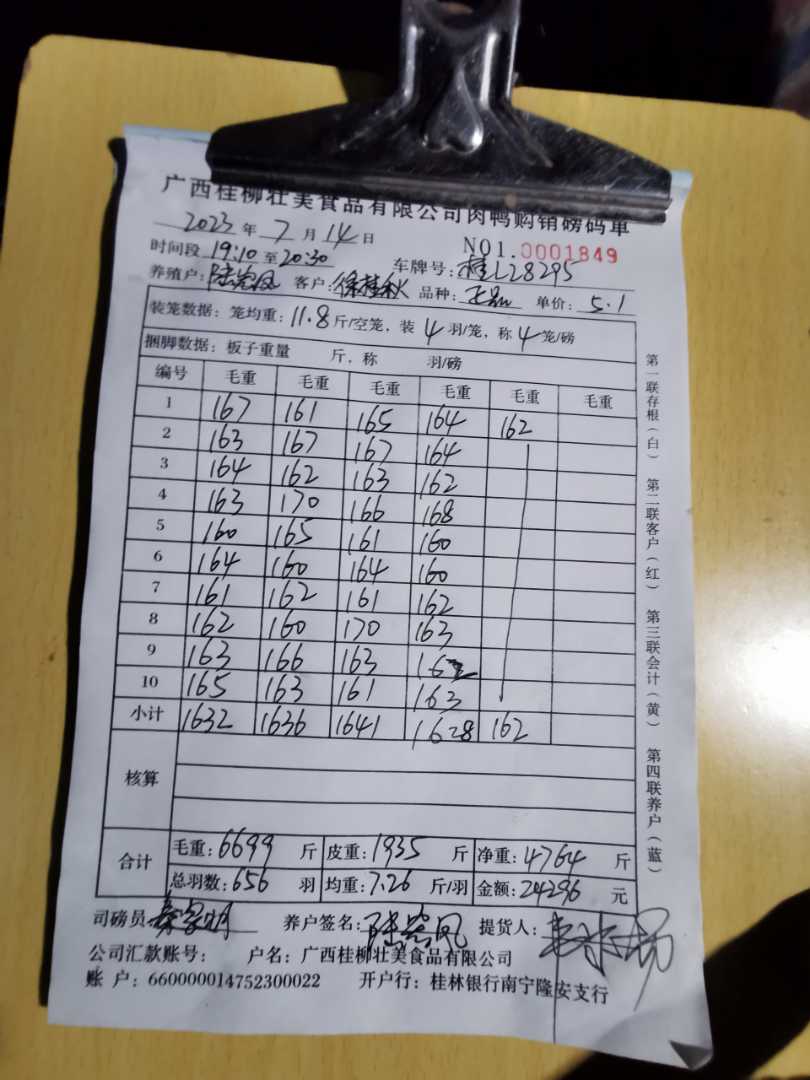 广西桂柳壮美食品有限公司肉鸭购销磅码单
2023年7月14日 NO1.0001849
时间段 19:10至20:30 车牌号:桂L28295
养殖户: 客户:徐桂秋 品种: 单价:5.1
装笼数据:笼均重:11.8斤/空笼,装4羽/笼,称4笼/磅
捆脚数据:板子重量 斤,称 羽/磅
编号 毛重 毛重 毛重 毛重 毛重 毛重
1 167 161 165 164 162
2 163 167 167 164
3 164 162 163 162
4 163 170 166 168
5 160 165 161 160
6 164 160 164 160
7 161 162 161 162
8 162 160 170 163
9 163 166 163 162
10 165 163 161 163
小计 1632 1636 1641 1628 162
核算
合计 毛重:6699斤 皮重:1935斤 净重:4764斤
总羽数:656羽 均重:7.26斤/羽 金额:24296元
司磅员: 养户签名: 提货人:
公司汇款账号: 户名:广西桂柳壮美食品有限公司
账户:660000014752300022 开户行:桂林银行南宁隆安支行
第一联存根(白) 第二联客户(红) 第三联会计(黄) 第四联养户(蓝)